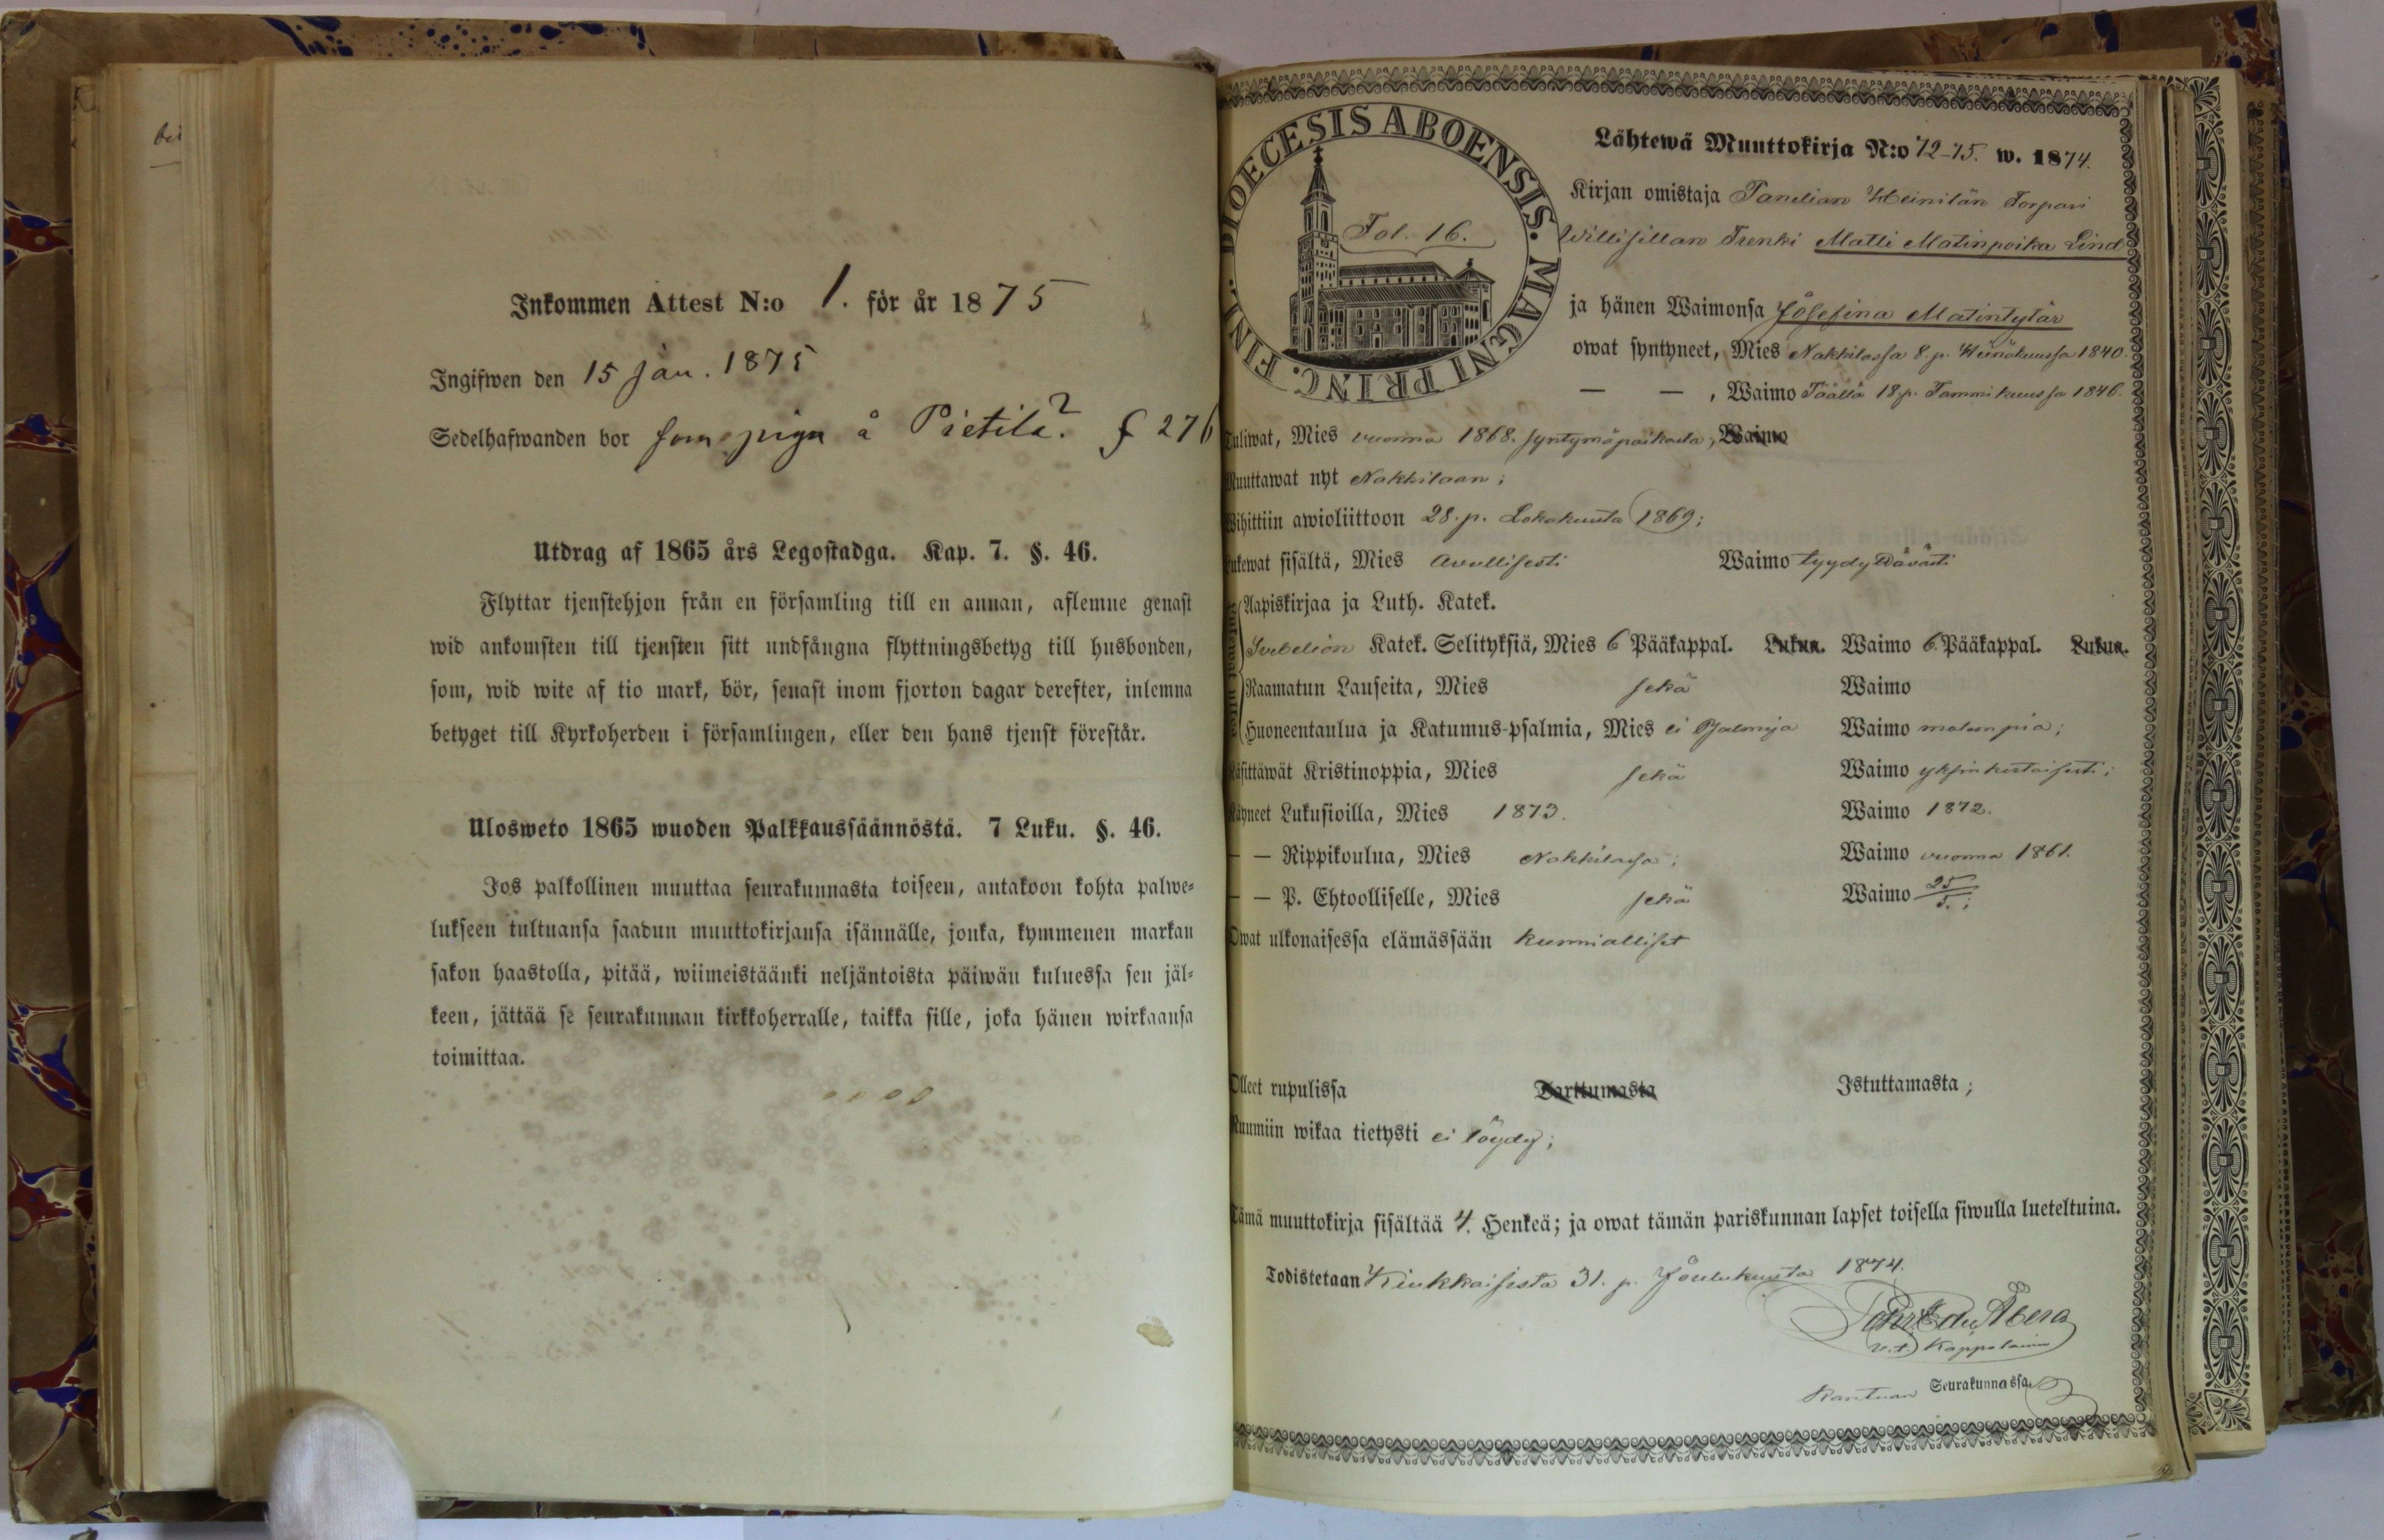 bei
Inkommen Attest N:o 1. för år 1875
Ingifwen den 15 jan. 1875
Sedelhafwanden bor som piga å Pietilä? f 276
Utdrag af 1865 års Legostadga. Kap. 7. §. 46.
Flyttar tjenstehjon från en församling till en annan, aflemne genast
wid ankomsten till tjensten sitt undfångna flyttningsbetyg till husbonden,
som, wid wite af tio mark, bör, senast inom fjorton dagar derefter, inlemna
betyget till Kyrkoherden i församlingen, eller den hans tjenst förestår.
Ulosweto 1865 wuoden Palkkaussäännöstä. 7 Luku. §. 46.
Jos palkollinen muuttaa seurakunnasta toiseen, antakoon kohta palwe-
lukseen tultuansa saadun muuttokirjansa isännälle, jonka, kymmenen markan
sakon haastolla, pitää, wiimeistäänki neljäntoista päiwän kuluessa sen jäl-
keen, jättää se seurakunnan kirkkoherralle, taikka sille, joka hänen wirkaansa
toimittaa.
DIOECESIS ABOENSIS. MAGNI PRINC. FINL.
Fol. 16.
Lähtewä Muuttokirja N:o 72-75. w. 1874.
Kirjan omistaja Panelian Heinilän Torpari
Willisillan Trenki Matti Matinpoika Lind
ja hänen Waimonsa Jósefina Matintytär
owat syntyneet, Mies Nakkilassa 8. p. Heinäkuussa 1840.
— — , Waimo Täällä 18. p. Tammikuussa 1846.
Tuliwat, Mies vuonna 1868. syntymäpaikasta, Waimo
Muuttawat nyt Nakkilaan;
Wihittiin awioliittoon 28. p. Lokakuuta 1869;
Lukewat sisältä, Mies Avullisesti Waimo tyydyttävästi
Aapiskirjaa ja Luth. Katek.
Svebelion Katek. Selityksiä, Mies 6 Pääkappal. Lukua. Waimo 6. Pääkappal. Lukua.
Raamatun Lauseita, Mies sekä Waimo
Huoneentaulua ja Katumus-psalmia, Mies ei Psalmija Waimo molempia;
Käsittäwät Kristinoppia, Mies sekä Waimo yksinkertaisesti;
Käyneet Lukusioilla, Mies 1873. Waimo 1872.
— — Rippikoulua, Mies Nakkilassa; Waimo vuonna 1861.
— — P. Ehtoolliselle, Mies sekä Waimo 25/5.;
Owat ulkonaisessa elämässään kunnialliset
Olleet rupulissa Tarttumasta Istuttamasta;
Ruumiin wikaa tietysti ei löydy;
Tämä muuttokirja sisältää 4. Henkeä; ja owat tämän pariskunnan lapset toisella siwulla lueteltuina.
Todistetaan Kiukkaisista 31. p. Joulukuuta 1874.
v.t. Kappalainen
Seurakunnassa